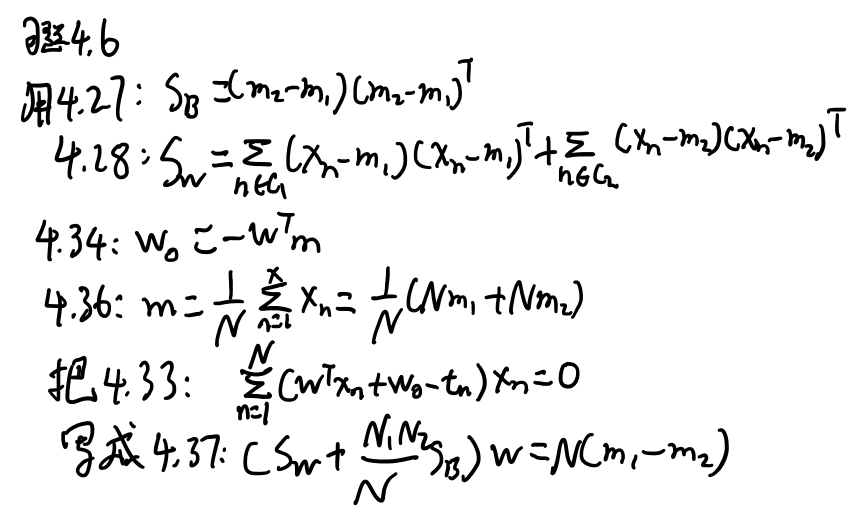 习题4.6
用4.27: S_B=(m₂-m₁)(m₂-m₁)ᵀ
4.28: S_w=∑_{n∈C₁}(x_n-m₁)(x_n-m₁)ᵀ+∑_{n∈C₂}(x_n-m₂)(x_n-m₂)ᵀ
4.34: w₀=-wᵀm
4.36: m=\frac{1}{N}∑_{n=1}^{x}x_n=\frac{1}{N}(Nm₁+Nm₂)
把4.33: ∑_{n=1}^{N}(wᵀx_n+w₀-t_n)x_n=0
写成4.37: (S_w+\frac{N₁N₂}{N}S_B)w=N(m₁-m₂)